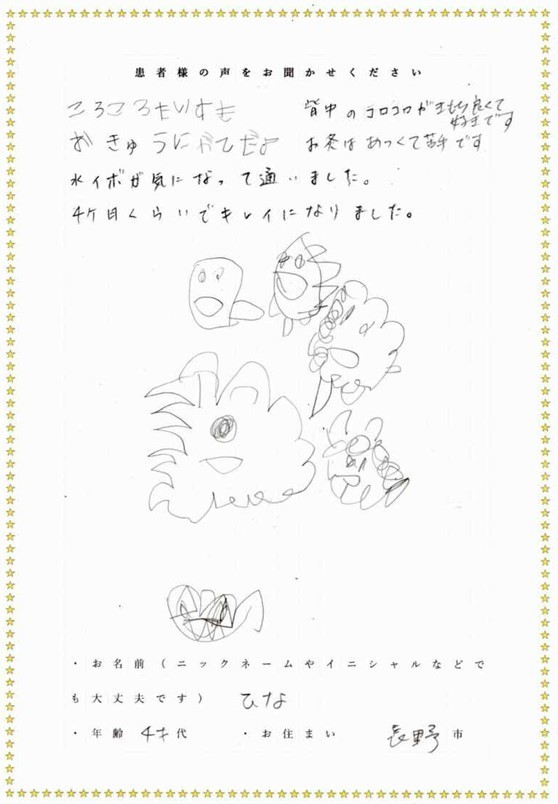 患者様の声をお聞かせください
ころころもいすも
おきゅうにがてだよ
背中のコロコロがきもち良くて
好きです
お灸はあつくて苦手です
水イボが気になって通いました。
4ヶ月くらいでキレイになりました。
・お名前(ニックネームやイニシャルなどで
も大丈夫です) ひな
・年齢 4才代 ・お住まい 長野市